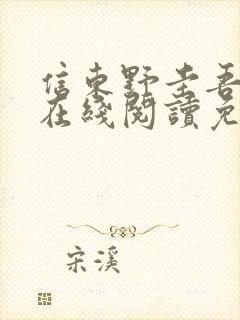 信東野圭吾
在綫閱讀免
宋溪